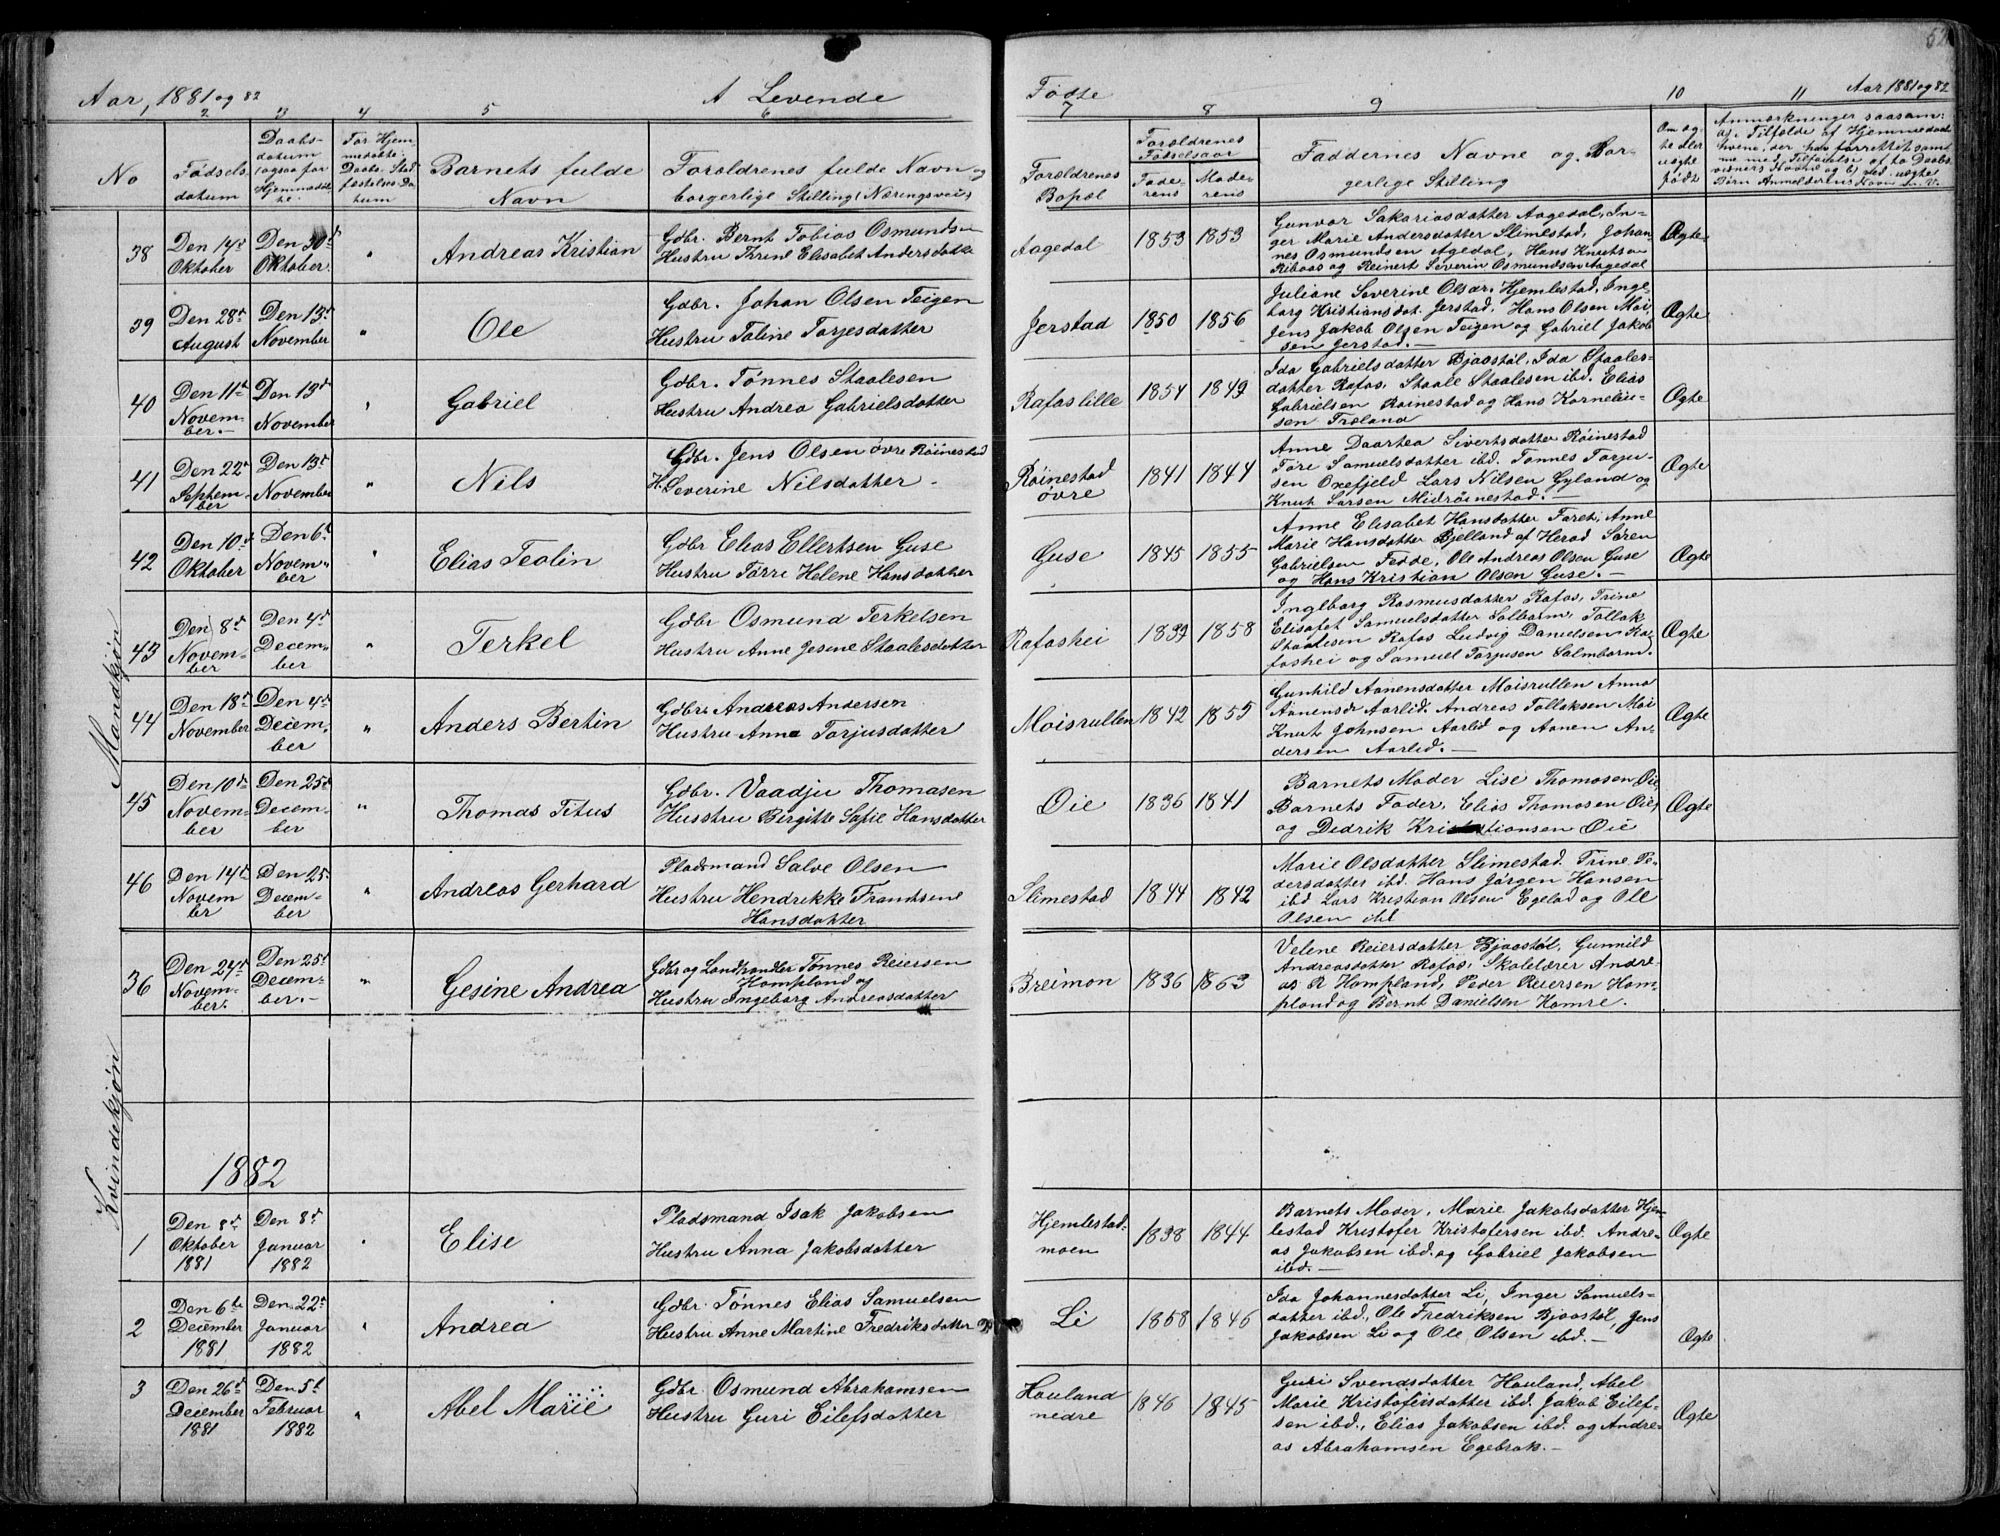 52
Aar, 1881 og 82
A Levende
Fødte
Aar 1881 og 82
1 2 3 4 5 6 7 8 9 10 11
No
Fødsels
datum
Daabs-
datum
ogsaa for
Hjemmedøbte.
For Hjem
medøbte.
Daabs. Stad
fæstelses Da
tum
Barnets fulde
Navn
Forældrenes fulde Navn og
borgerlige Stilling (Næringsvei)
Forældrenes
Bopæl
Forældrenes
Fødselsaar
Fade-
rens
Mode-
rens
Faddernes Navne og Bor-
gerlige Stilling
Om æg-
te eller
uægte
født
Mandkjøn
38
Den 14de
Oktober
Den 30te
Oktober.
"
Andreas Kristian
Gdbr. Bernt Tobias Osmundsen
Hustru Trine Elisabet Andersdatter
Aagedal
1853
1853
Gunvor Sakariasdatter Aagedal, In-
ger Marie Andersdatter Slimestad, Johan-
nes Osmundsen Agedal, Hans Knutsen
Ribaas og Reinert Severin Osmundsen Aagedal
Ægte
39
Den 28de
August
Den 13de
November
"
Ole
Gdbr. Johan Olsen Teigen
Hustru Taline Torjesdatter
Jerstad
1850
1856
Juliane Severine Olsdr. Hjemlestad, Inge-
borg Kristiansdat. Jerstad, Hans Olsen Moi
Jens Jakob Olsen Teigen og Gabriel Jakob
sen Jerstad.-
Ægte
40
Den 11te
Novem-
ber.-
Den 13de
November
"
Gabriel
Gdbr. Tønnes Staalesen
Hustru Andrea Gabrielsdatter
Rafoslille
1854
1849
Ida Gabrielsdatter Bjaastøl, Ida Staales-
datter Rafos, Staale Staalesen ibd. Elias
Gabrielsen Røinestad og Hans Korneliu-
sen Træland
Ægte
41
Den 22de
Septem-
ber
Den 13de
November
"
Nils
Gdbr. Jens Olsen øvre Röinestad
H. Severine Nilsdatter -
Röinestad
øvre
1841
1844
Anne Daartea Sivertsdatter Røinestad
Tøre Samuelsdatter ibd. Tønnes Torju-
sen Oxefjeld Lars Nilsen Gyland og
Knut Larsen Midröinestad.-
Ægte
42
Den 10de
Oktober
Den 6te
Novem-
ber
"
Elias Teolin
Gdbr Elias Ellertsen Guse
Hustru Tørre Helene Hansdatter
Guse
1845
1855
Anne Elisabet Hansdatter Faret, Anne
Marie Hansdatter Bjelland af Herad Søren
Gabrielsen Fedde, Ole Andreas Olsen Guse
og Hans Kristian Olsen Guse.-
Ægte
43
Den 8de
Novem-
ber
Den 4de
Decem-
ber
"
Terkel
Gdbr Osmund Terkelsen
Hustru Anne Jesine Staalesdatter
Rafoshei
1858
Ingeborg Rasmusdatter Rafos, Trine
Elisabet Samuelsdatter Salbarm, Tollak
Staalesen Rafos Ludvig Danielsen Ra-
foshei og Samuel Torjusen Salmbarm.
Ægte
44
Den 18de
November
Den 4de
Decem-
ber
"
Anders Bertin
Gdbr. Andreas Andersen
Hustru Anna Torjusdatter
Moisrullen
1842
1855
Gunhild Aanensdatter Moisrullen Anna
Aanensdr Aarlid. Andreas Tollaksen Moi
Knut Johnsen Aarlid og Aanen An-
dersen Aarlid.-
Ægte
45
Den 10de
Novem-
ber
Den 25de
Decem-
ber
"
Thomas Titus
Gdbr. Vaadju Thomasen
Husstru Birgitte Sofie Hansdatter
Øie
1836
1841
Barnets Moder Lise Thomasen Øie
Barnets Fader, Elias Thomasen Øie,
og Dedrik Kristiansen Øie
Ægte
46
Den 14de
Novem
ber
Den 25.
Decem-
ber
"
Andreas Gerhard
Pladsmand Salve Olsen
Hustru Hendrikke Frantsine
Hansdatter
Slimestad
1844
1842
Marie Olsdatter Slimestad. Trine Pe-
dersdatter ibd. Hans Jørgen Hansen
ibd Lars Kristian Olsen Egelad og Ole
Olsen ibd
Kvindekjøn
36
Den 24de
Novem-
ber.
Den 25de
Decem-
ber.-
"
Gesine Andrea
Gdbr og Landhandler Tönnes Reiersen
Hompland og
Hustru Ingeborg Andreasdatter
Breimon
1836
1863
Velene Reiersdatter Bjaastøl, Gunnild
Andreasdatter Rafos, Skolelærer Andre-
as R Hompland, Peder Reiersen Hom-
pland og Bernt Danielsen Homre.
1882
1
Den 8de
Oktober
1881
Den 8de
Januar
1882
"
Elise
Pladsmand Isak Jakobsen
Hustru Anna Jakobsdatter
Hjemlestad-
moen
1838
1844
Barnets Moder, Marie Jakobsdatter Hjem-
lestad Kristofer Kristofersen ibd. Andre-
as Jakobsen ibd. og Gabriel Jakobsen
ibd.-
Ægte
2
Den 6te
December
1881
Den 22de
Januar
1882
"
Andrea
Gdbr. Tønnes Elias Samuelsen
Hustru Anne Martine Fredriksdatter
Li
1858
1846
Ida Johannesdatter Li, Inger Samuels-
datter ibd., Ole Fredriksen Bjaastøl, Jens
Jakobsen Li og Ole Olsen ibd.-
Ægte
3
Den 26de
December
1881
Den 5te
Februar
1882
"
Abel Marie
Gdbr Osmund Abrahamsen
Hustru Guri Eilefsdatter
Houland
nedre
1846
1845
Guri Svendsdatter Houland, Abel
Marie Kristofersdatter ibd. Jakob Eilef-
sen ibd., Elias Jakobsen ibd. og Andre-
as Abrahamsen Egebrok.-
Ægte